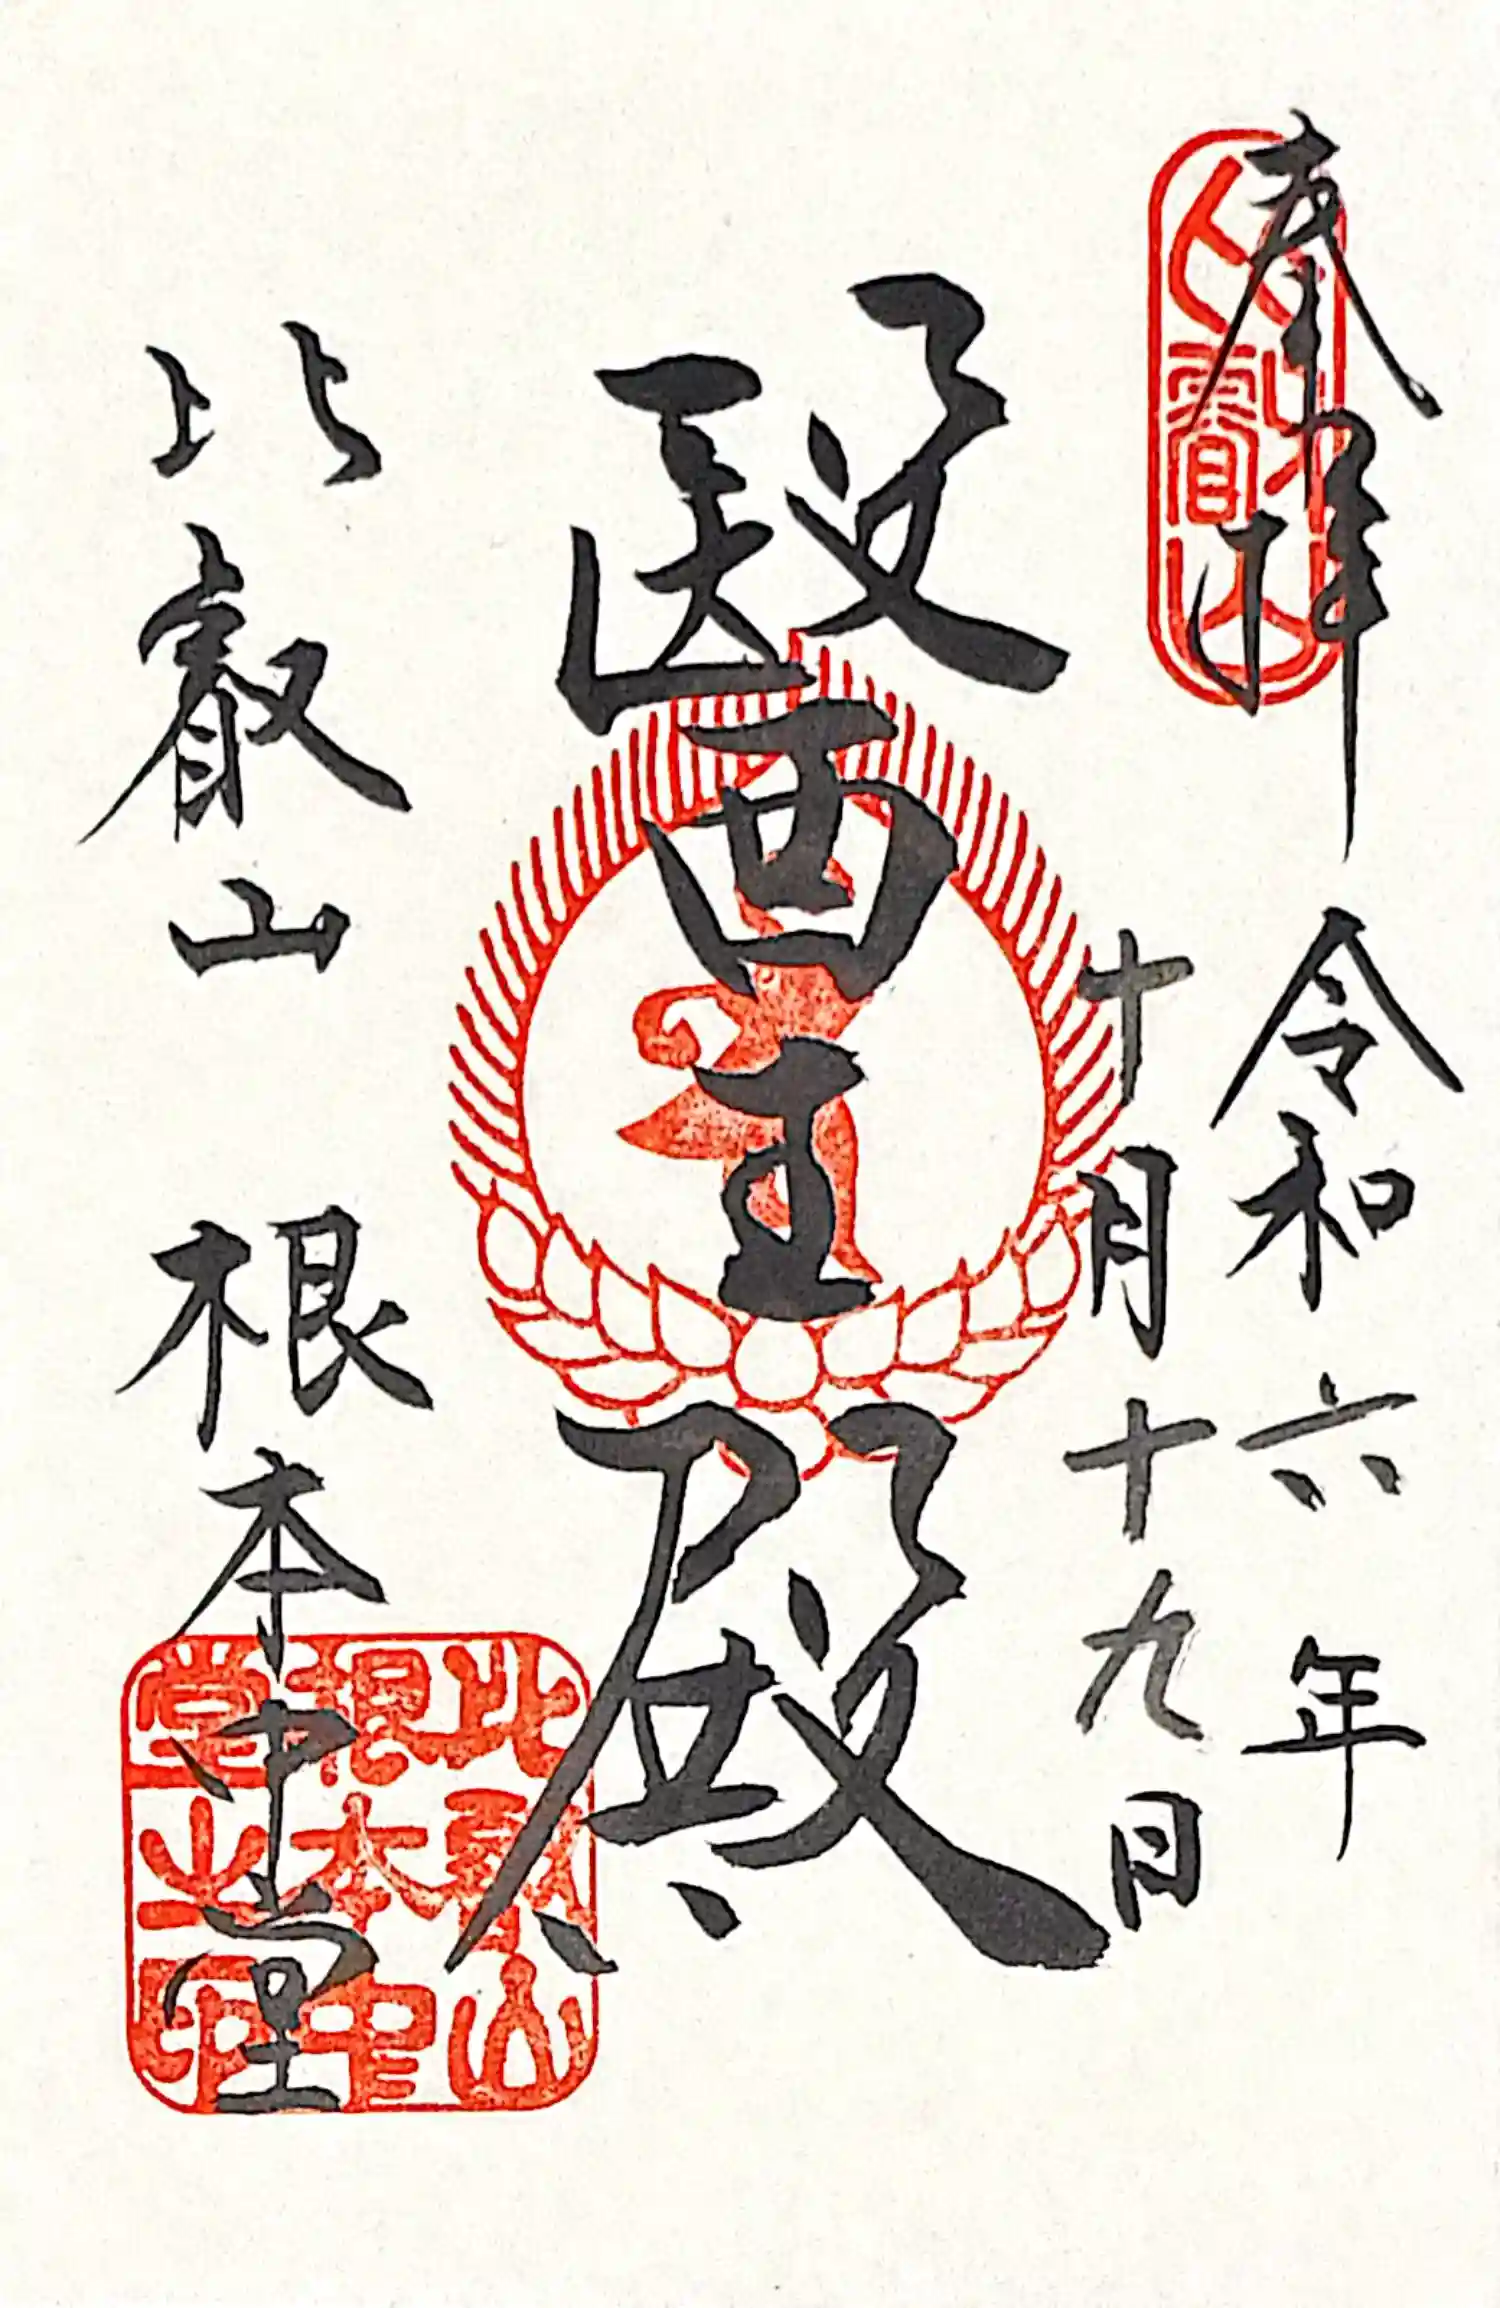 奉拝
令和六年
十月十九日
醫王殿
比叡山 根本中堂
比叡山
根本中
堂之印